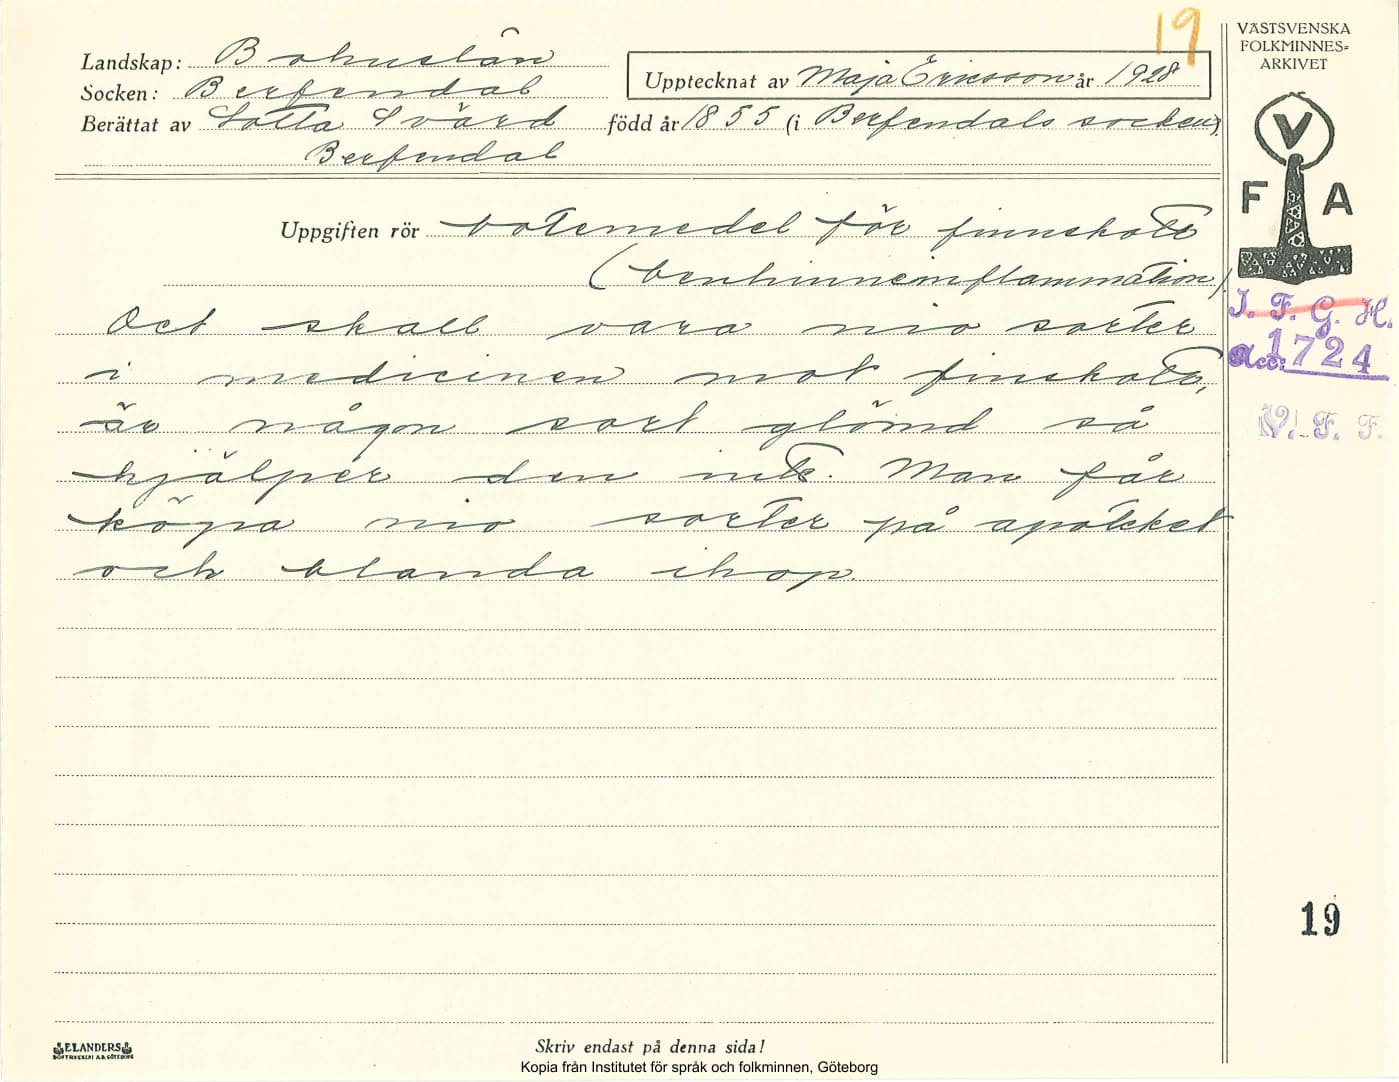 19
VÄSTSVENSKA
FOLKMINNES=
ARKIVET
Landskap: Bohuslän
Upptecknat av Maja Ericsson år 1928
Socken: Berfendal
Berättat av Lotta Svärd född år 1855 (i Berfendals socken)
Berfendal
V
F A
Uppgiften rör botemedel för finnskott
(benhinneinflammation).
I. F. G. H.
Acc: 1724
V. F. F.
Det skall vara nio sorter
i medicinen mot finskott,
är någon sort glömd så
hjälper den inte. Man får
köpa nio sorter på apoteket
och blanda ihop.
19
ELANDERS
BOKTRYCKERI A.B. GÖTEBORG
Skriv endast på denna sida!
Kopia från Institutet för språk och folkminnen, Göteborg